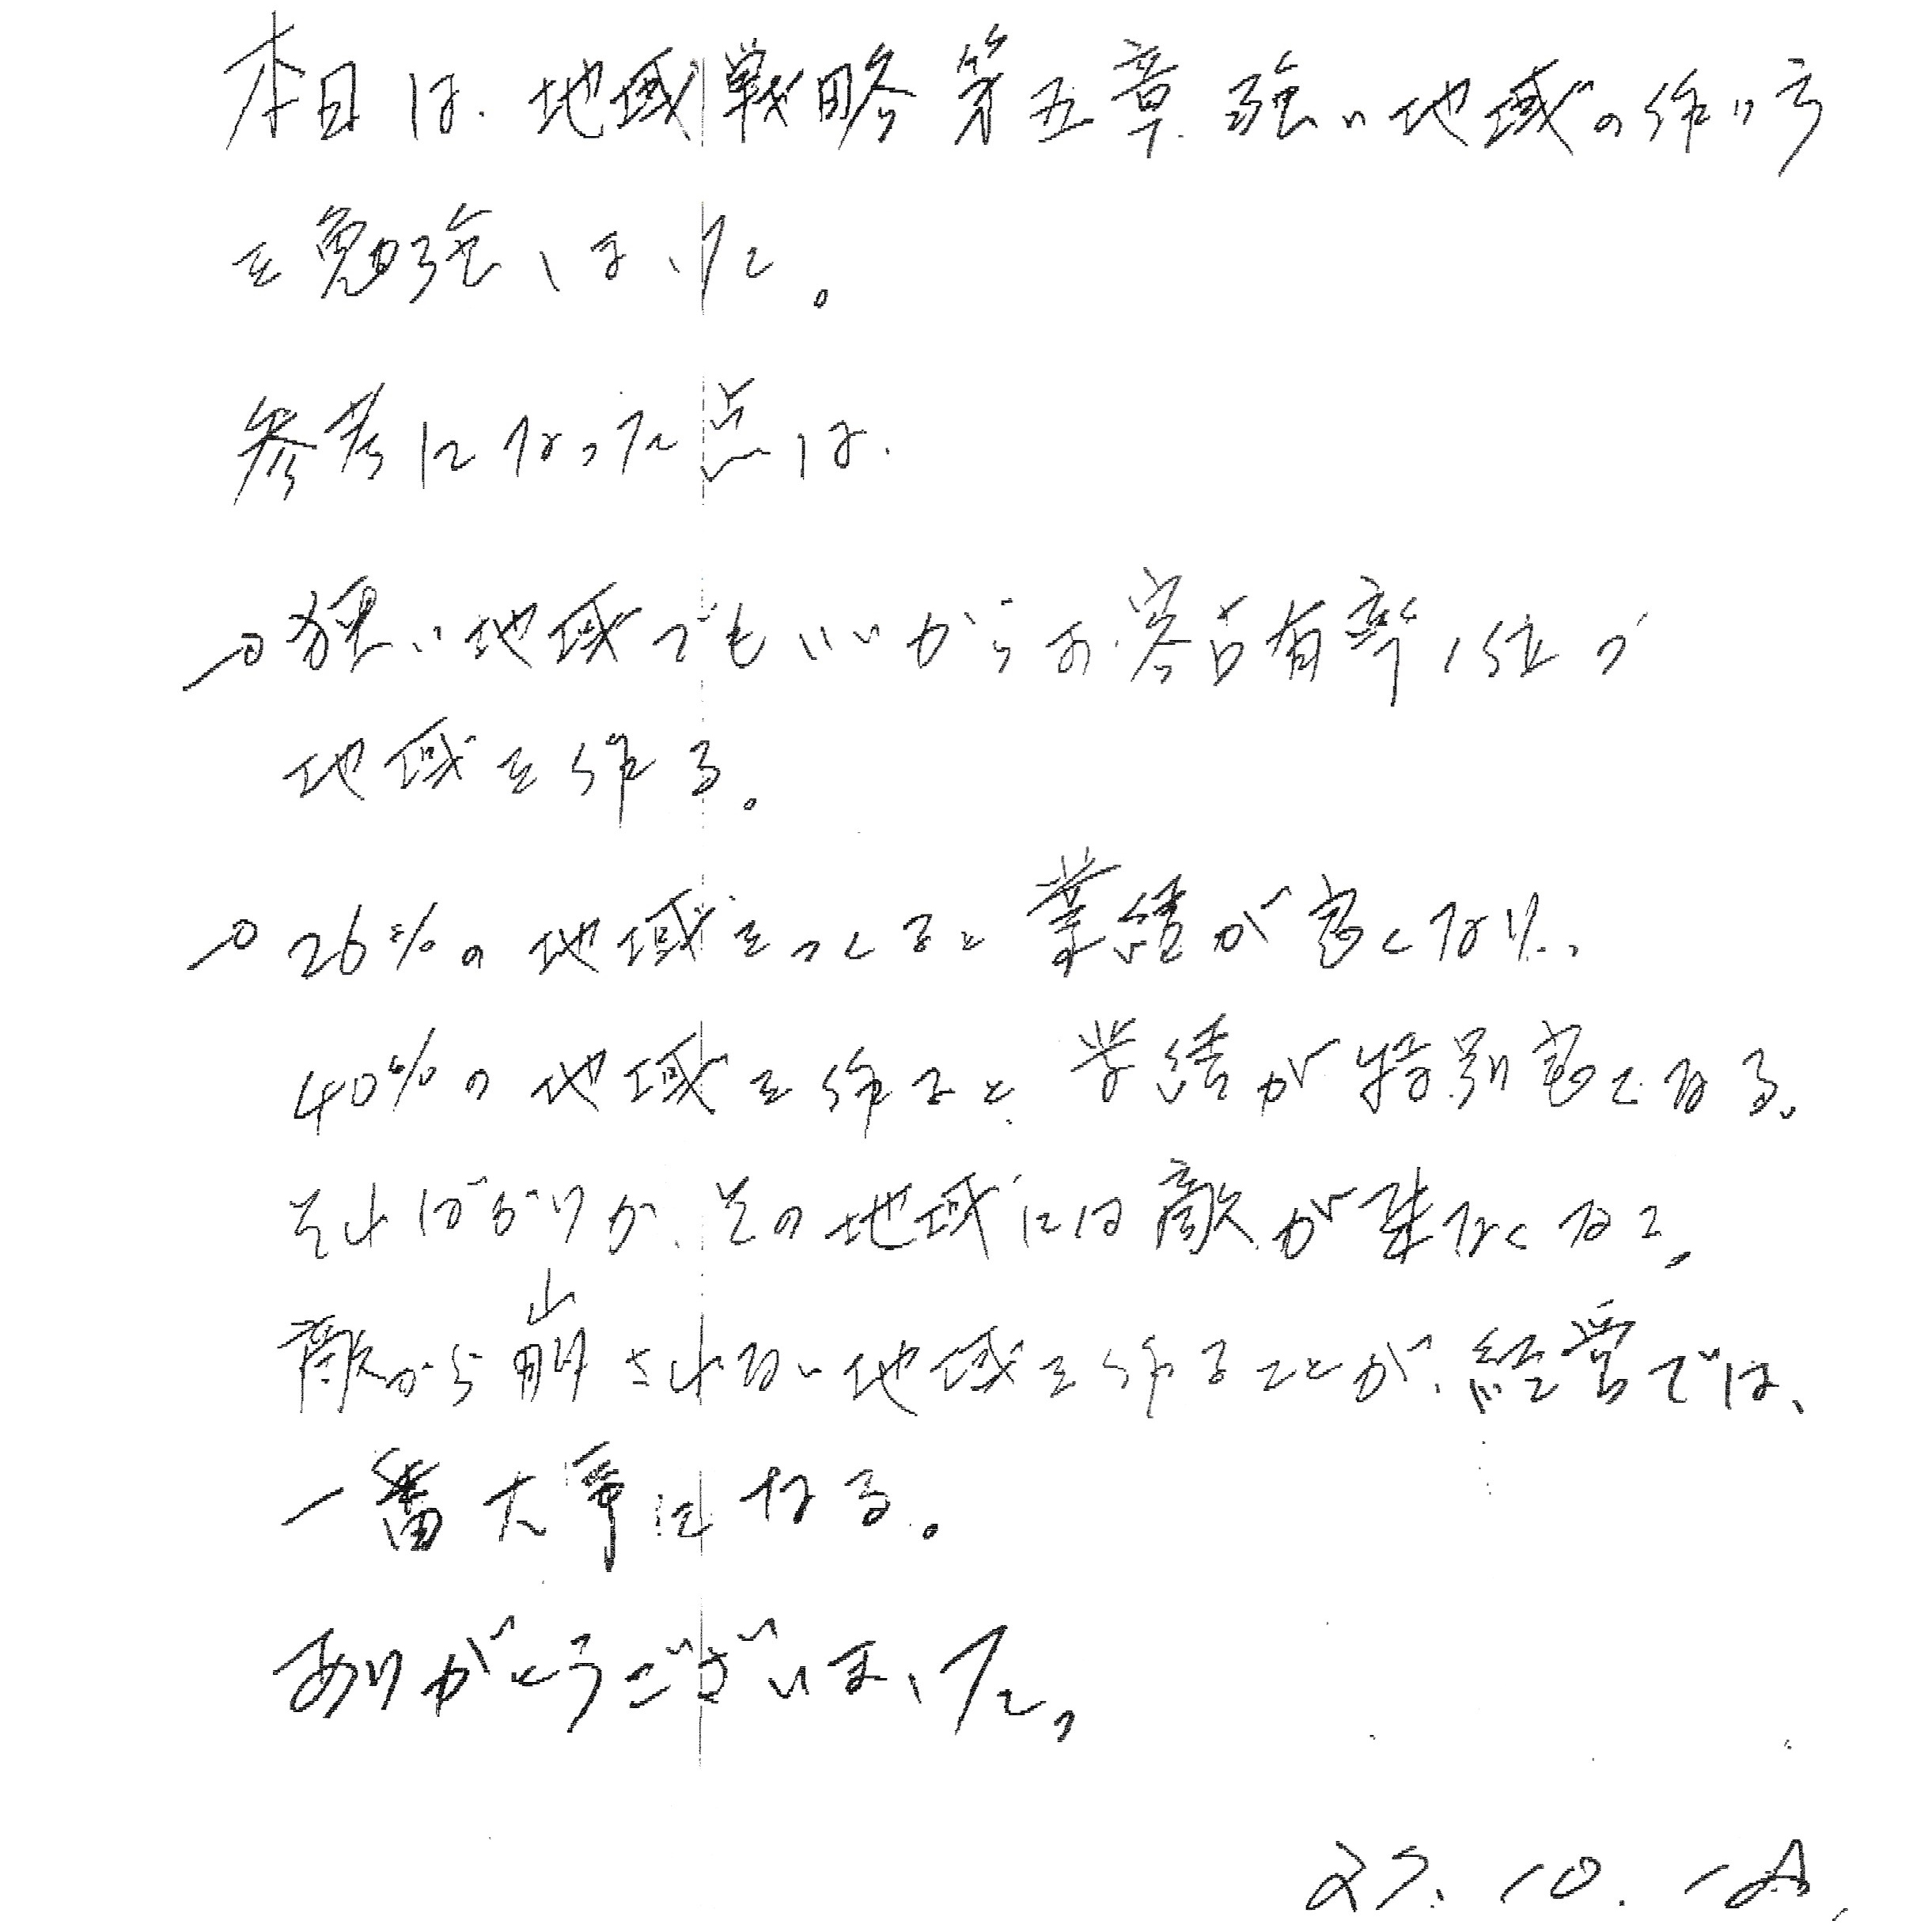 本日は、地域戦略第五章 強い地域の作り方
を勉強しました。
参考になった点は、
狭い地域でもいいからお客占有率1位の
地域を作る。
26%の地域をつくると業績が良くなり、
40%の地域を作ると、業績が特別良くなる。
そればかりか、その地域には敵が来なくなる。
敵から崩されない地域を作ることが、経営では、
一番大事になる。
ありがとうございました。
27. 10.